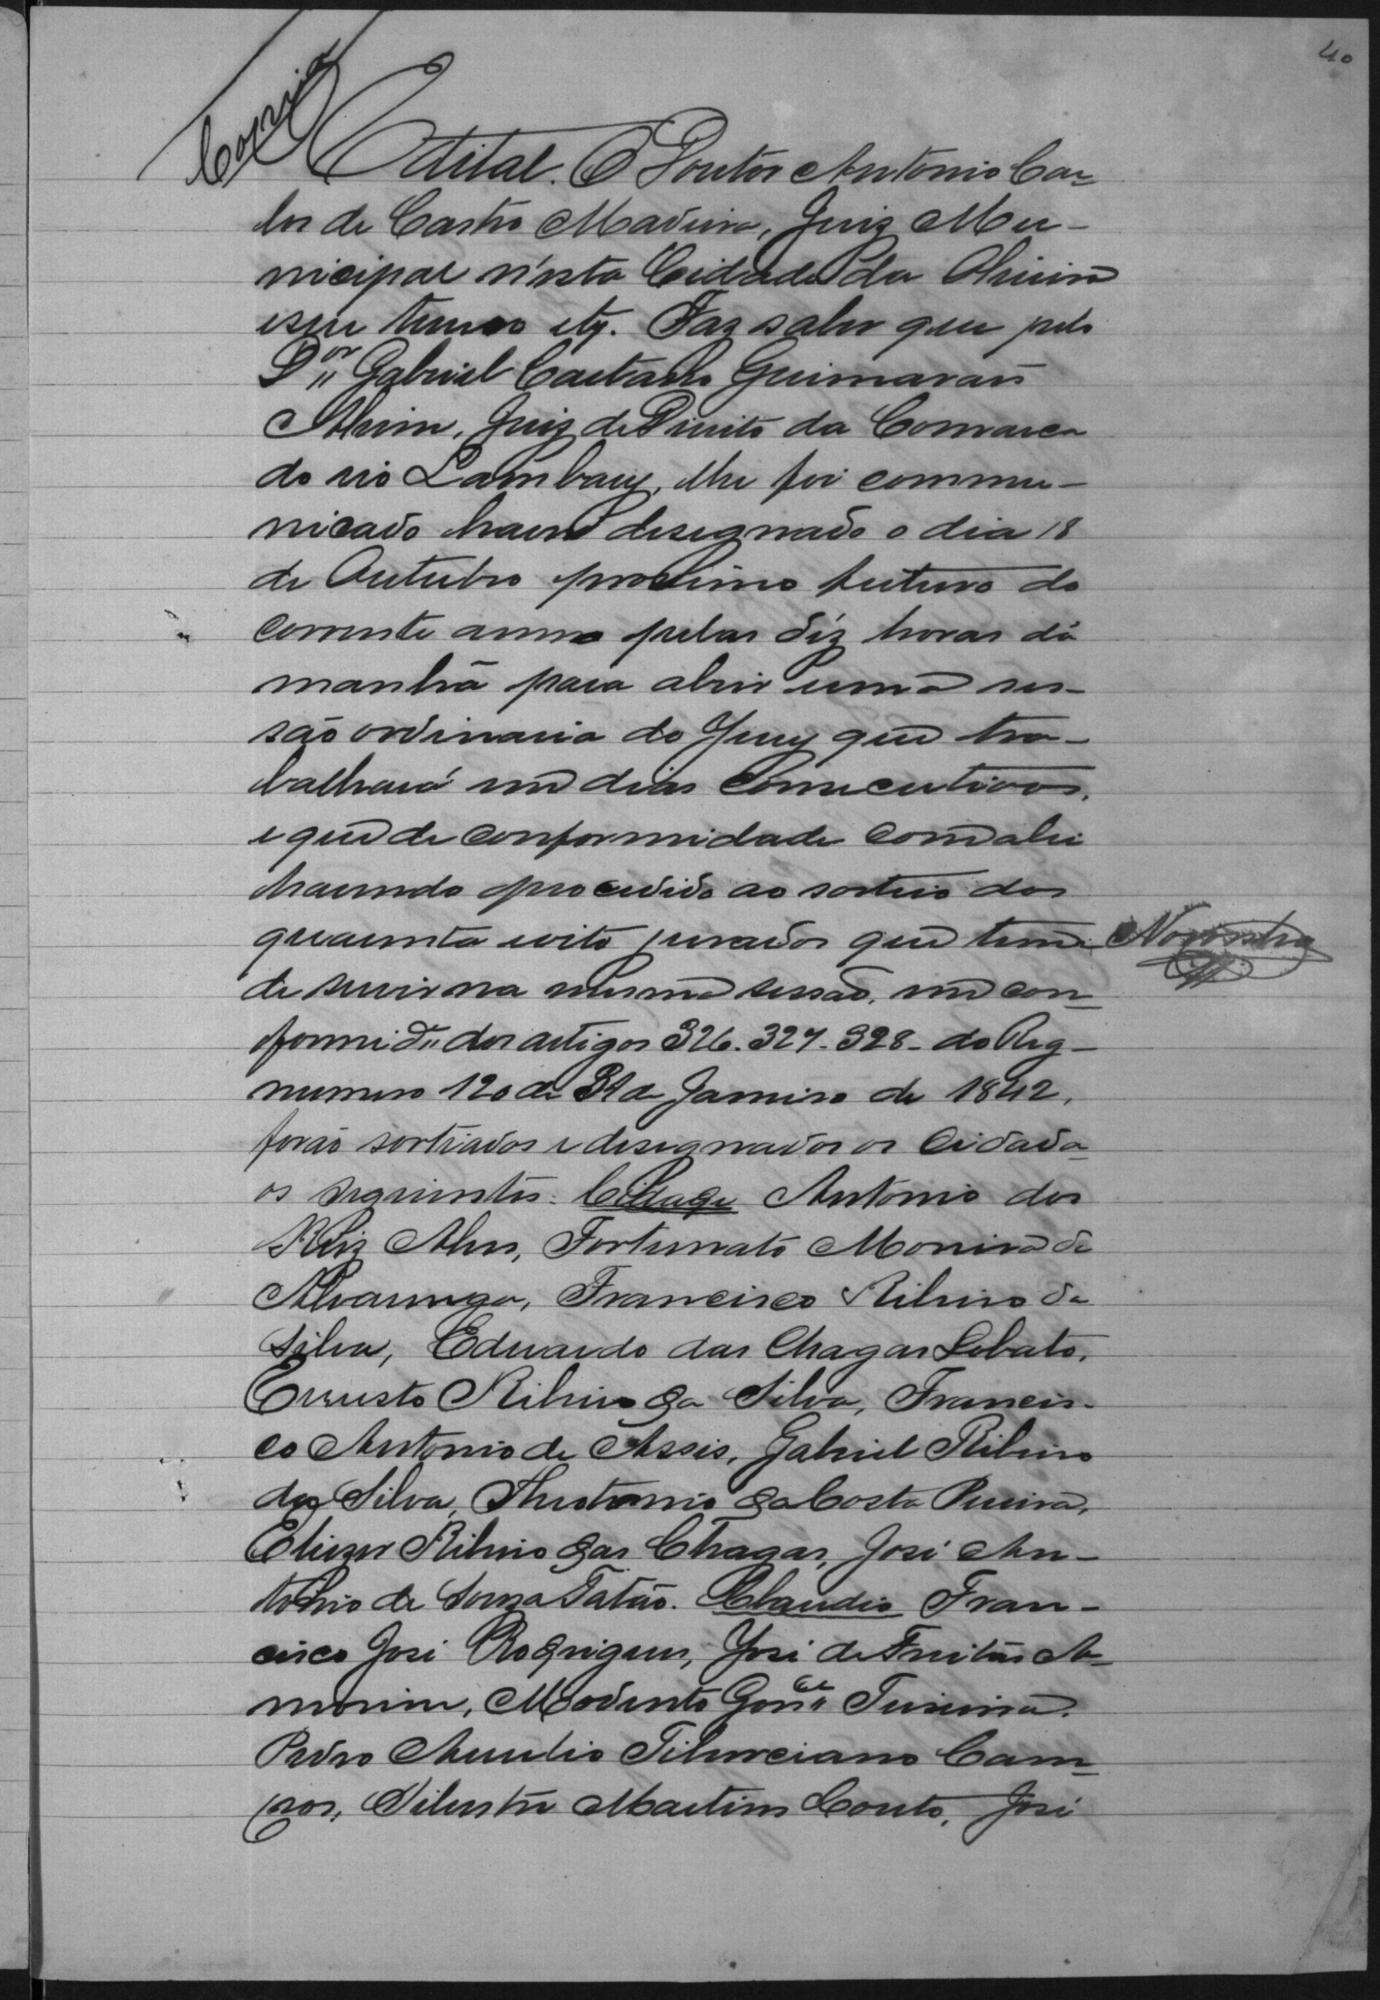 40
Copia
Edital. O Doutor Antonio Car-
los de Castro Madeira, Juiz Mu-
nicipal n'esta Cidade da Oliveira
eseu termo etc. Faz saber que pelo
D.or Gabriel Caetano Guimaraes
Alvim, Juiz de Direito da Comarca
do rio Lambary, lhe foi commu-
nicado haver designado o dia 18
de Outubro proximo futuro do
corrente anno pelas déz horas da
manhã para abrir uma ses-
são ordinaria do Jury que tra-
balhará em dias consecutivos,
e que de conformidade com a lei
havendo procedido ao sorteio dos
quarenta eoito jurados que tem
de servir na mesma sessão, em con-
formid.e dos artigos 326. 327. 328 - do Reg-
numero 120 de 31 de Janeiro de 1842,
forão sortiados e designados os Cidada-
os seguintes: Cidade Antonio dos
Reiz Alves, Fortunato Moreira de
Alvarenga, Francisco Ribeiro da
Silva, Eduardo das Chagas Lobato,
Ernesto Ribeiro da Silva, Francis-
co Antonio de Assis, Gabriel Ribeiro
da Silva, Antonio da Costa Pereira,
Eliezer Ribeiro das Chagas, José An-
tonio de Souza Tatão. Claudio Fran-
cisco José Rodrigues, José de Freitas A-
morim, Modesto Gon.ce Teixeira,
Pedro Aurelio Tiburciano Cam-
pos, Silvestre Martins Couto, José